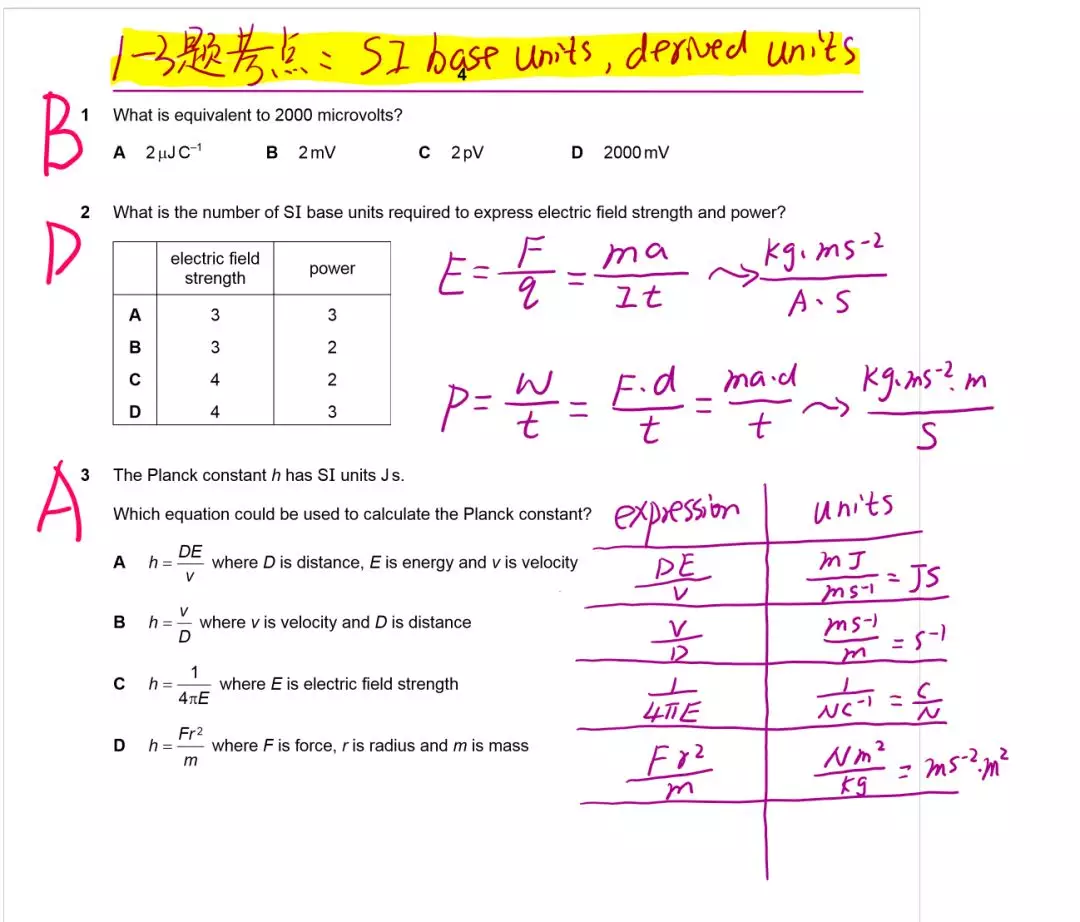 1-3题考点: SI base units, derived units
4
B
1 What is equivalent to 2000 microvolts?
A 2 μJ C⁻¹ B 2 mV C 2 pV D 2000 mV
D
2 What is the number of SI base units required to express electric field strength and power?
electric field strength power
A 3 3
B 3 2
C 4 2
D 4 3
E = F/q = ma/It ⤳ kg·ms⁻²/A·s
P = W/t = F·d/t = ma·d/t ⤳ kg·ms⁻²·m/s
A
3 The Planck constant h has SI units J s.
Which equation could be used to calculate the Planck constant?
A h = DE/v where D is distance, E is energy and v is velocity
B h = v/D where v is velocity and D is distance
C h = 1/4πE where E is electric field strength
D h = Fr²/m where F is force, r is radius and m is mass
expression units
DE/v mJ/ms⁻¹ = Js
v/D ms⁻¹/m = s⁻¹
1/4πE 1/NC⁻¹ = C/N
Fr²/m Nm²/kg = ms⁻²·m²